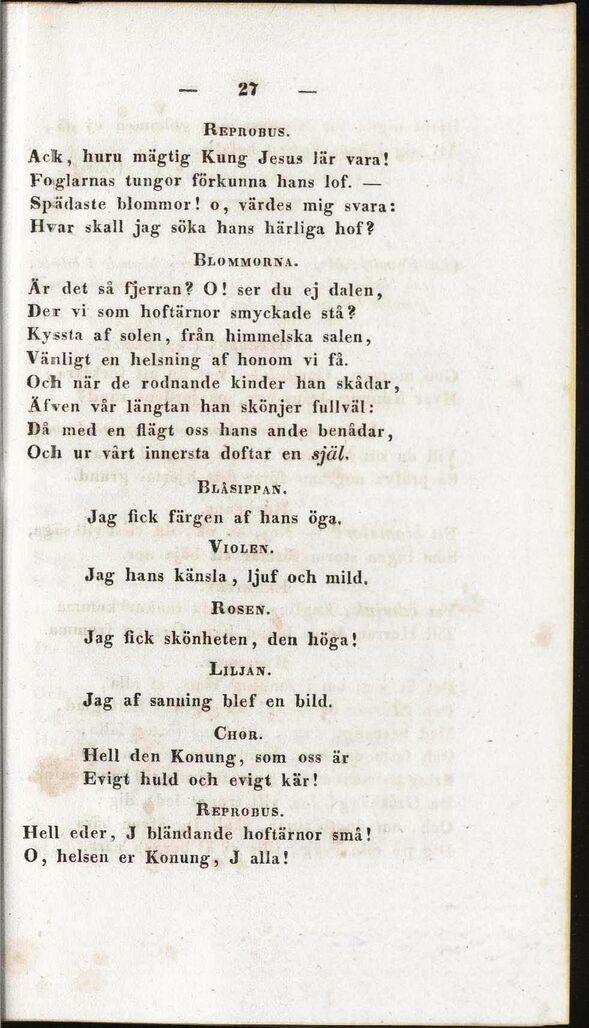 — 27 —
REPROBUS.
Ack, huru mägtig Kung Jesus lär vara!
Foglarnas tungor förkunna hans lof. —
Spädaste blommor! o, värdes mig svara:
Hvar skall jag söka hans härliga hof?
BLOMMORNA.
Är det så fjerran? O! ser du ej dalen,
Der vi som hoftärnor smyckade stå?
Kyssta af solen, från himmelska salen,
Vänligt en helsning af honom vi få.
Och när de rodnande kinder han skådar,
Äfven vår längtan han skönjer fullväl:
Då med en flägt oss hans ande benådar,
Och ur vårt innersta doftar en själ.
BLÅSIPPAN.
Jag fick färgen af hans öga.
VIOLEN.
Jag hans känsla, ljuf och mild.
ROSEN.
Jag fick skönheten, den höga!
LILJAN.
Jag af sanning blef en bild.
CHOR.
Hell den Konung, som oss är
Evigt huld och evigt kär!
REPROBUS.
Hell eder, J bländande hoftärnor små!
O, helsen er Konung, J alla!